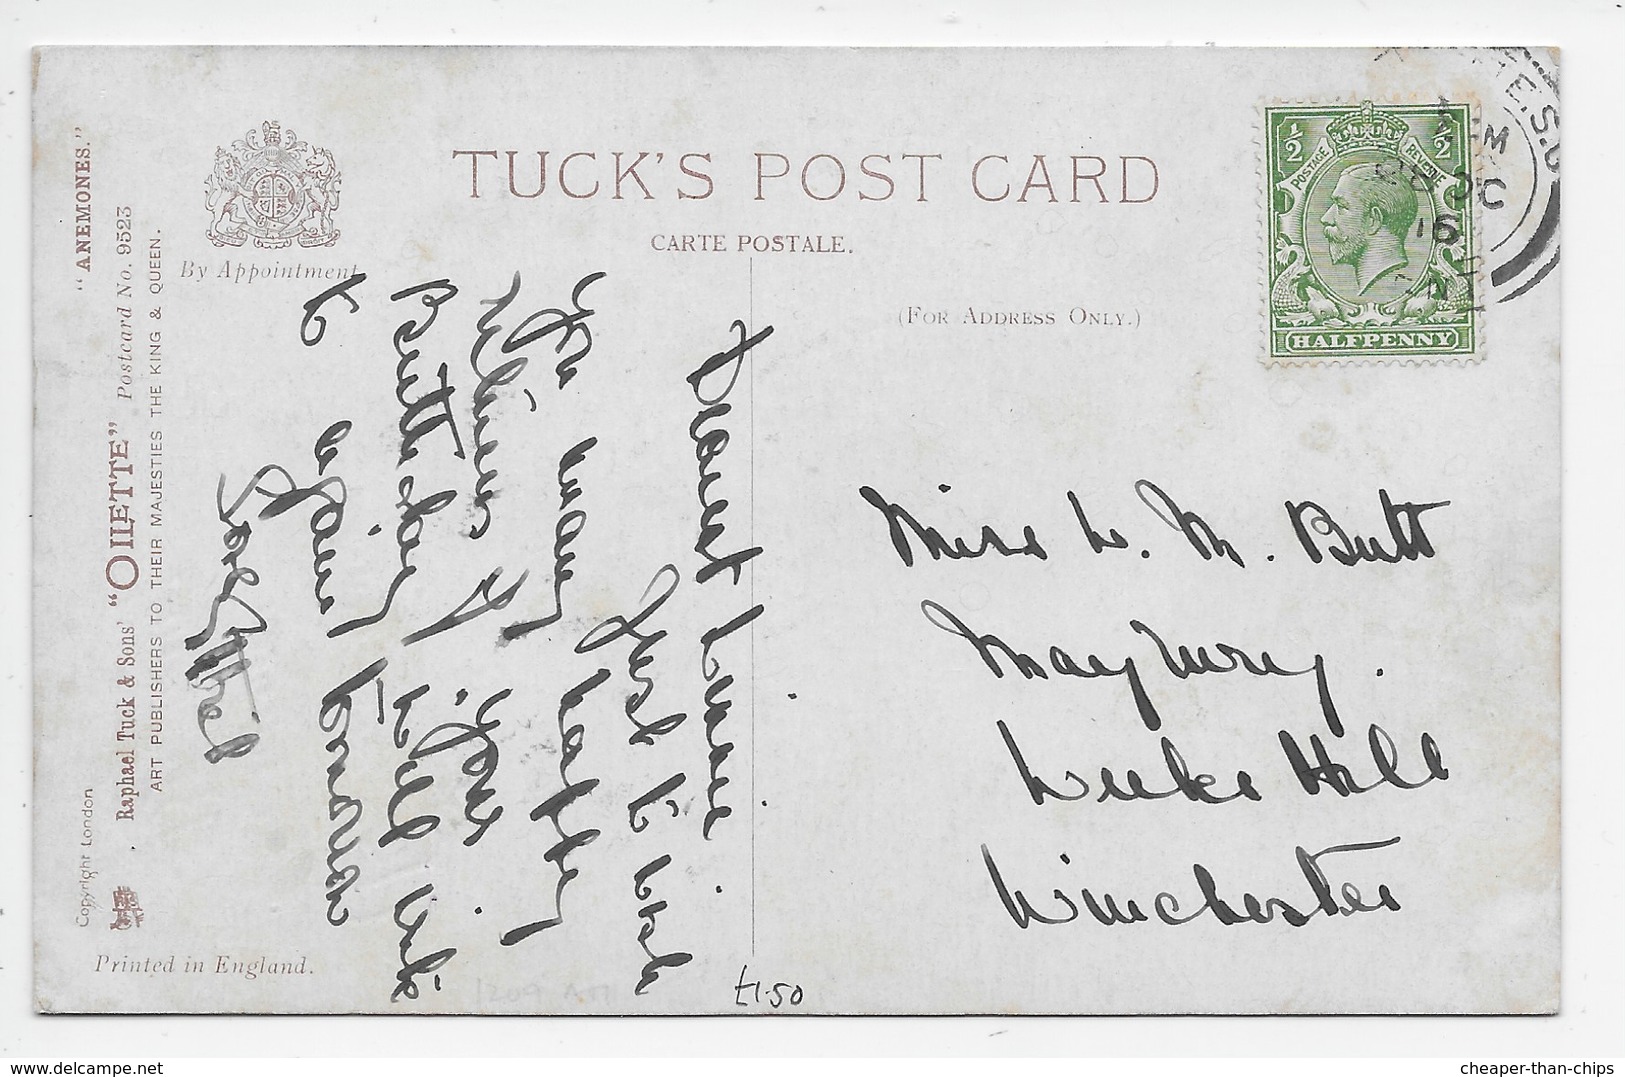 TUCK'S POST CARD
CARTE POSTALE.
(FOR ADDRESS ONLY.)
By Appointment
"ANEMONES."
"OILETTE" Postcard No. 9523
Raphael Tuck & Sons'
ART PUBLISHERS TO THEIR MAJESTIES THE KING & QUEEN.
Copyright London
Printed in England.
½ ½
POSTAGE REVENUE
HALFPENNY
OC
16
Dearest Winnie
Just to wish
you many happy
returns of your
Birthday. Will write
to again tomorrow
Love Ethel
Miss W. M. Butt
Maywrey.
Weeke Hill
Winchester
£1.50
cheaper-than-chips